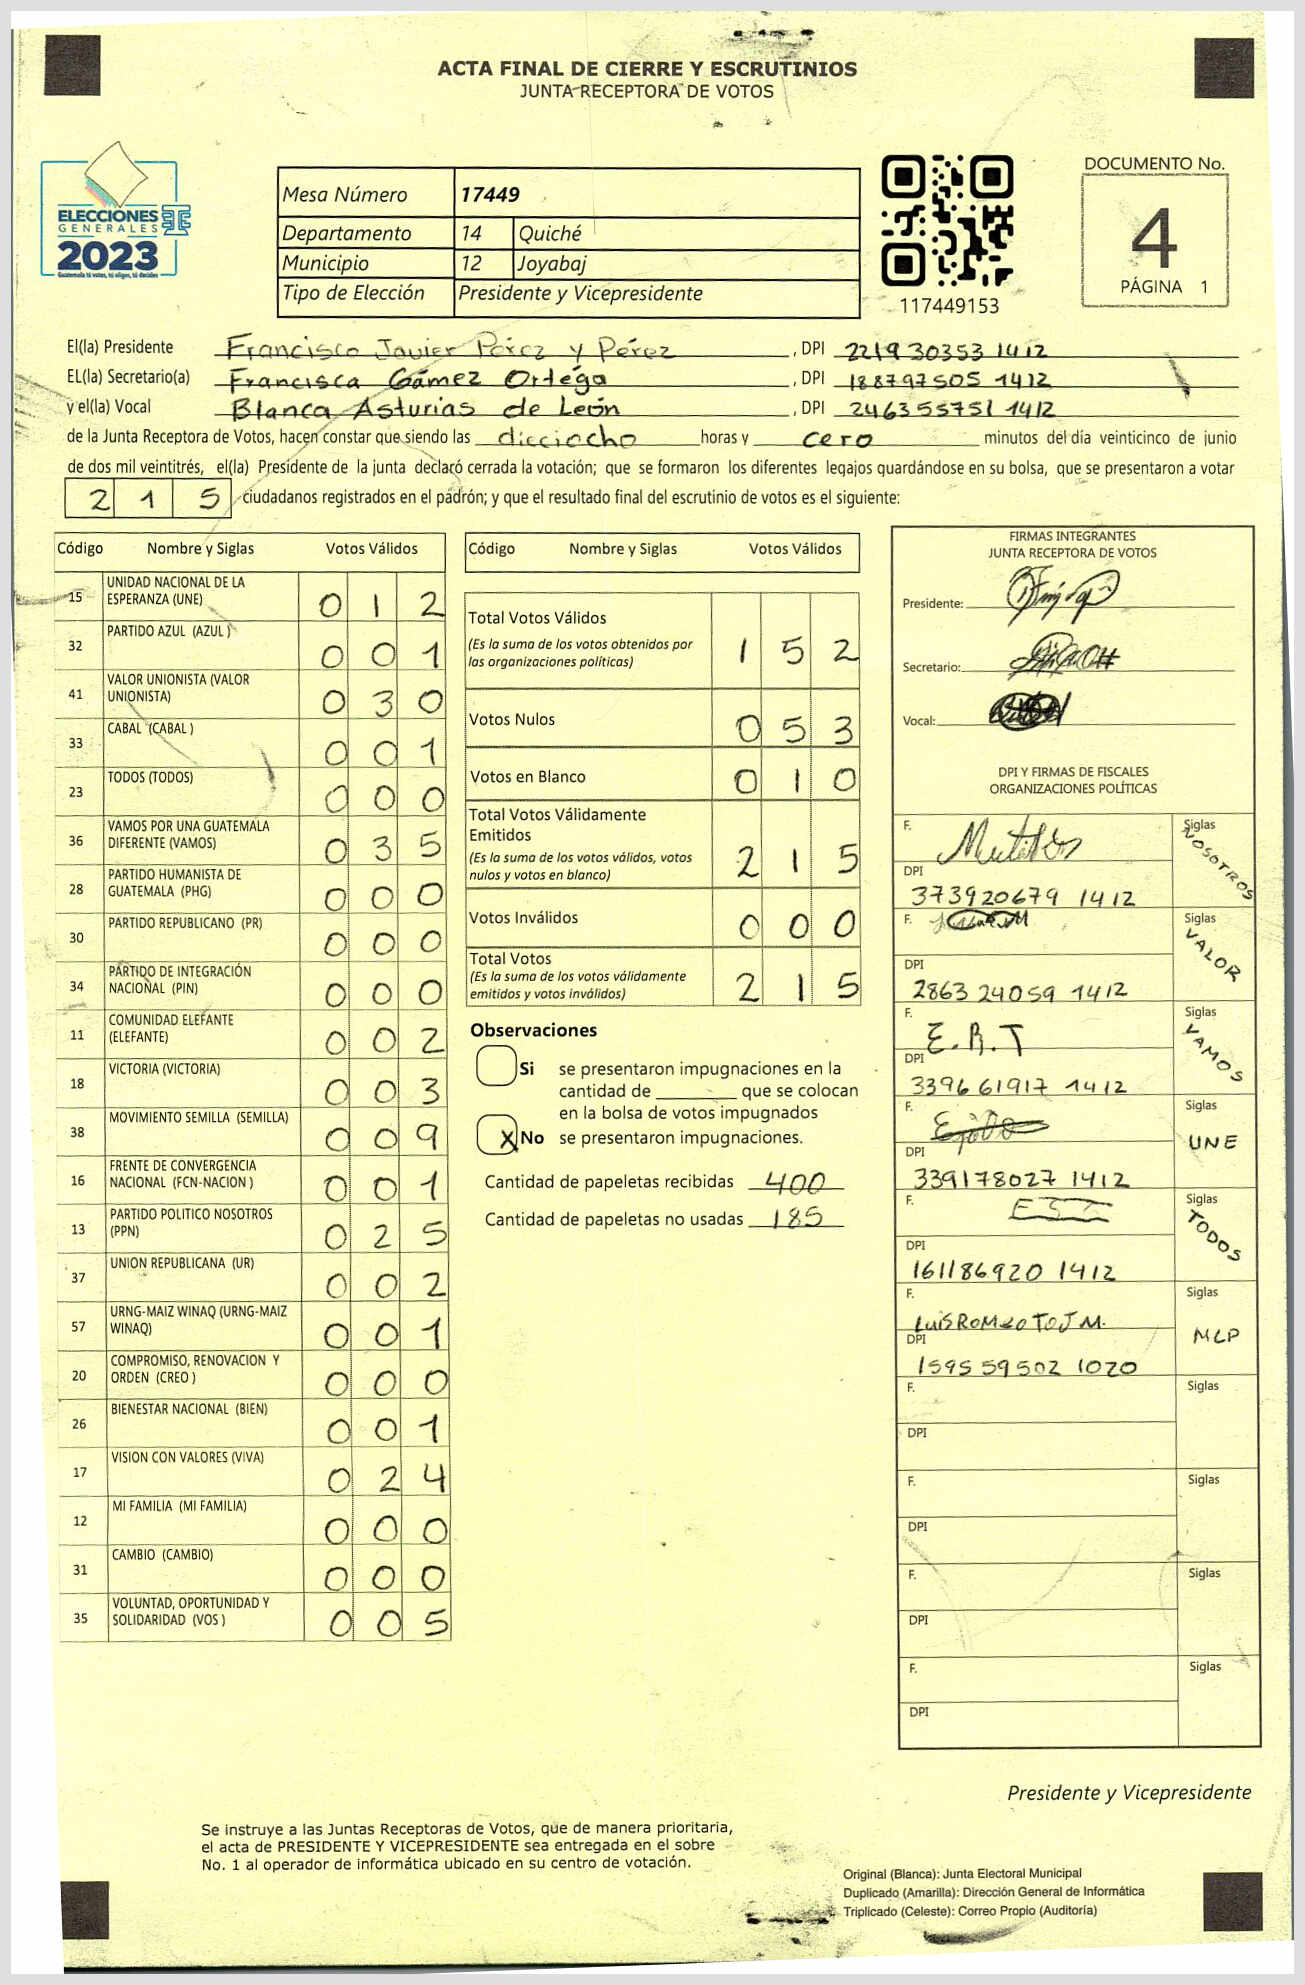 ACTA FINAL DE CIERRE Y ESCRUTINIOS
JUNTA RECEPTORA DE VOTOS
ELECCIONES
GENERALES
2023
Guatemala tú votas, tú eliges, tú decides
Mesa Número 17449
Departamento 14 Quiché
Municipio 12 Joyabaj
Tipo de Elección Presidente y Vicepresidente
117449153
DOCUMENTO No.
4
PÁGINA 1
El(la) Presidente Francisco Javier Pérez y Pérez , DPI 2219 30353 1412
EL(la) Secretario(a) Francisca Gámez Ortega , DPI 188797505 1412
y el(la) Vocal Blanca Asturias de León , DPI 246355751 1412
de la Junta Receptora de Votos, hacen constar que siendo las dieciocho horas y cero minutos del día veinticinco de junio
de dos mil veintitrés, el(la) Presidente de la junta declaró cerrada la votación; que se formaron los diferentes legajos guardándose en su bolsa, que se presentaron a votar
2 1 5 ciudadanos registrados en el padrón; y que el resultado final del escrutinio de votos es el siguiente:
Código Nombre y Siglas Votos Válidos
15 UNIDAD NACIONAL DE LA
ESPERANZA (UNE) 0 1 2
32 PARTIDO AZUL (AZUL ) 0 0 1
41 VALOR UNIONISTA (VALOR
UNIONISTA) 0 3 0
33 CABAL (CABAL ) 0 0 1
23 TODOS (TODOS) 0 0 0
36 VAMOS POR UNA GUATEMALA
DIFERENTE (VAMOS) 0 3 5
28 PARTIDO HUMANISTA DE
GUATEMALA (PHG) 0 0 0
30 PARTIDO REPUBLICANO (PR) 0 0 0
34 PARTIDO DE INTEGRACIÓN
NACIONAL (PIN) 0 0 0
11 COMUNIDAD ELEFANTE
(ELEFANTE) 0 0 2
18 VICTORIA (VICTORIA) 0 0 3
38 MOVIMIENTO SEMILLA (SEMILLA) 0 0 9
16 FRENTE DE CONVERGENCIA
NACIONAL (FCN-NACION ) 0 0 1
13 PARTIDO POLITICO NOSOTROS
(PPN) 0 2 5
37 UNION REPUBLICANA (UR) 0 0 2
57 URNG-MAIZ WINAQ (URNG-MAIZ
WINAQ) 0 0 1
20 COMPROMISO, RENOVACION Y
ORDEN (CREO ) 0 0 0
26 BIENESTAR NACIONAL (BIEN) 0 0 1
17 VISION CON VALORES (VIVA) 0 2 4
12 MI FAMILIA (MI FAMILIA) 0 0 0
31 CAMBIO (CAMBIO) 0 0 0
35 VOLUNTAD, OPORTUNIDAD Y
SOLIDARIDAD (VOS ) 0 0 5
Código Nombre y Siglas Votos Válidos
Total Votos Válidos
(Es la suma de los votos obtenidos por
las organizaciones políticas) 1 5 2
Votos Nulos 0 5 3
Votos en Blanco 0 1 0
Total Votos Válidamente
Emitidos
(Es la suma de los votos válidos, votos
nulos y votos en blanco) 2 1 5
Votos Inválidos 0 0 0
Total Votos
(Es la suma de los votos válidamente
emitidos y votos inválidos) 2 1 5
Observaciones
Si se presentaron impugnaciones en la
cantidad de que se colocan
en la bolsa de votos impugnados
X No se presentaron impugnaciones.
Cantidad de papeletas recibidas 400
Cantidad de papeletas no usadas 185
FIRMAS INTEGRANTES
JUNTA RECEPTORA DE VOTOS
Presidente:
Secretario:
Vocal:
DPI Y FIRMAS DE FISCALES
ORGANIZACIONES POLÍTICAS
F. Siglas NOSOTROS
DPI
373920679 1412
F. Siglas VALOR
DPI
2863 24059 1412
F. E.R.T Siglas VAMOS
DPI
3396 61917 1412
F. Siglas UNE
DPI
339178027 1412
F. Siglas TODOS
DPI
161186920 1412
F. LUIS ROMEO TOJ M. Siglas MLP
DPI
1595 59502 1020
F. Siglas
DPI
F. Siglas
DPI
F. Siglas
DPI
F. Siglas
DPI
Presidente y Vicepresidente
Se instruye a las Juntas Receptoras de Votos, que de manera prioritaria,
el acta de PRESIDENTE Y VICEPRESIDENTE sea entregada en el sobre
No. 1 al operador de informática ubicado en su centro de votación.
Original (Blanca): Junta Electoral Municipal
Duplicado (Amarilla): Dirección General de Informática
Triplicado (Celeste): Correo Propio (Auditoría)